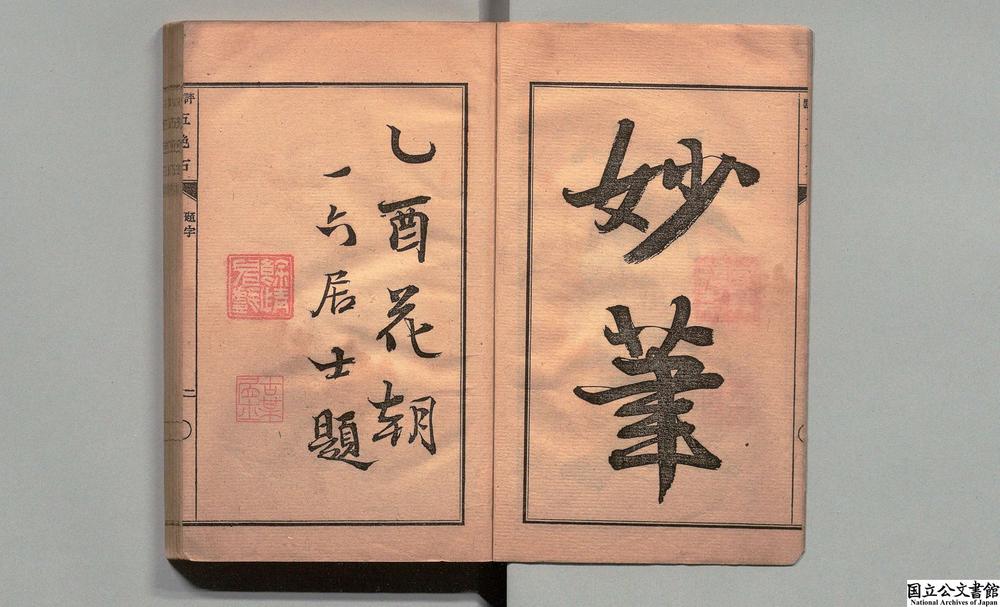 妙
筆
乙酉花朝
一六居士題
評五色石
題字
二
国立公文書館
National Archives of Japan